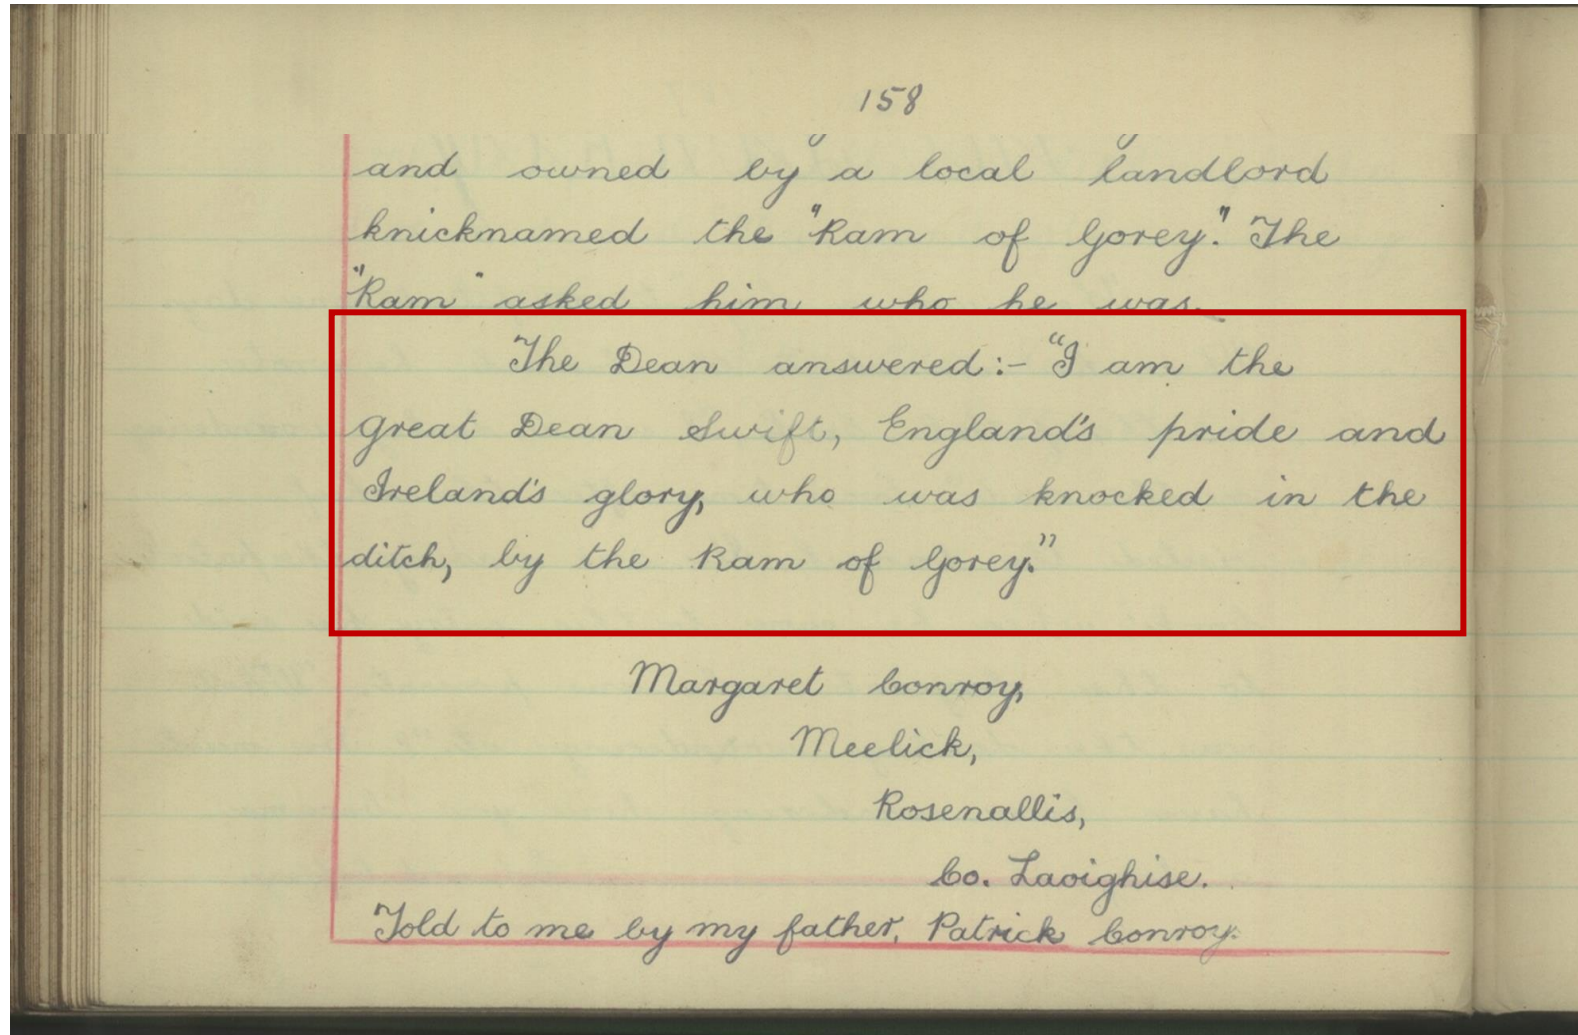 158
and owned by a local landlord
knicknamed the "Ram of Gorey". The
"Ram" asked him who he was.
The Dean answered:- "I am the
great Dean Swift, England's pride and
Ireland's glory, who was knocked in the
ditch, by the Ram of Gorey."
Margaret Conroy,
Meelick,
Rosenallis,
Co. Laoighise.
Told to me by my father, Patrick Conroy.